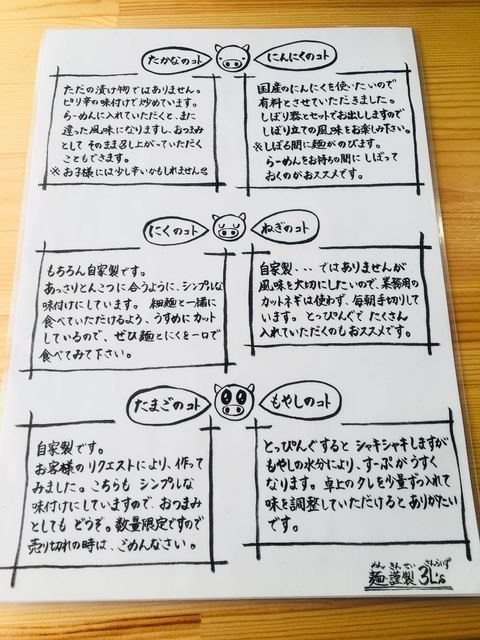 たかなのコト
ただの漬け物ではありません。
ピリ辛の味付けで炒めています。
らーめんに入れていただくと、また
違った風味になりますし、おつまみ
として そのまま召し上がっていただく
こともできます。
※お子様には少し辛いかもしれません
にんにくのコト
国産のにんにくを使いたいので
有料とさせていただきました。
しぼり器とセットでお出ししますので
しぼり立ての風味をお楽しみ下さい。
※しぼる間に麺がのびます。
らーめんをお待ちの間に しぼって
おくのがおススメです。
にくのコト
もちろん自家製です。
あっさりとんこつに合うように、シンプルな
味付けにしています。 細麺と一緒に
食べていただけるよう、うすめにカット
しているので、ぜひ麺とにくを一口で
食べてみて下さい。
ねぎのコト
自家製・・・ではありませんが
風味を大切にしたいので、業務用の
カットネギは使わず、毎朝手切りして
います。 とっぴんぐで たくさん
入れていただくのもおススメです。
たまごのコト
自家製です。
お客様のリクエストにより、作って
みました。こちらも シンプルな
味付けにしていますので、おつまみ
としても どうぞ。数量限定ですので
売り切れの時は、ごめんなさい。
もやしのコト
とっぴんぐすると シャキシャキしますが
もやしの水分により、すーぷがうすく
なります。卓上のタレを少量ずつ入れて
味を調整していただけると ありがたい
です。
めん きん せい さんらいず
麺謹製 3L's